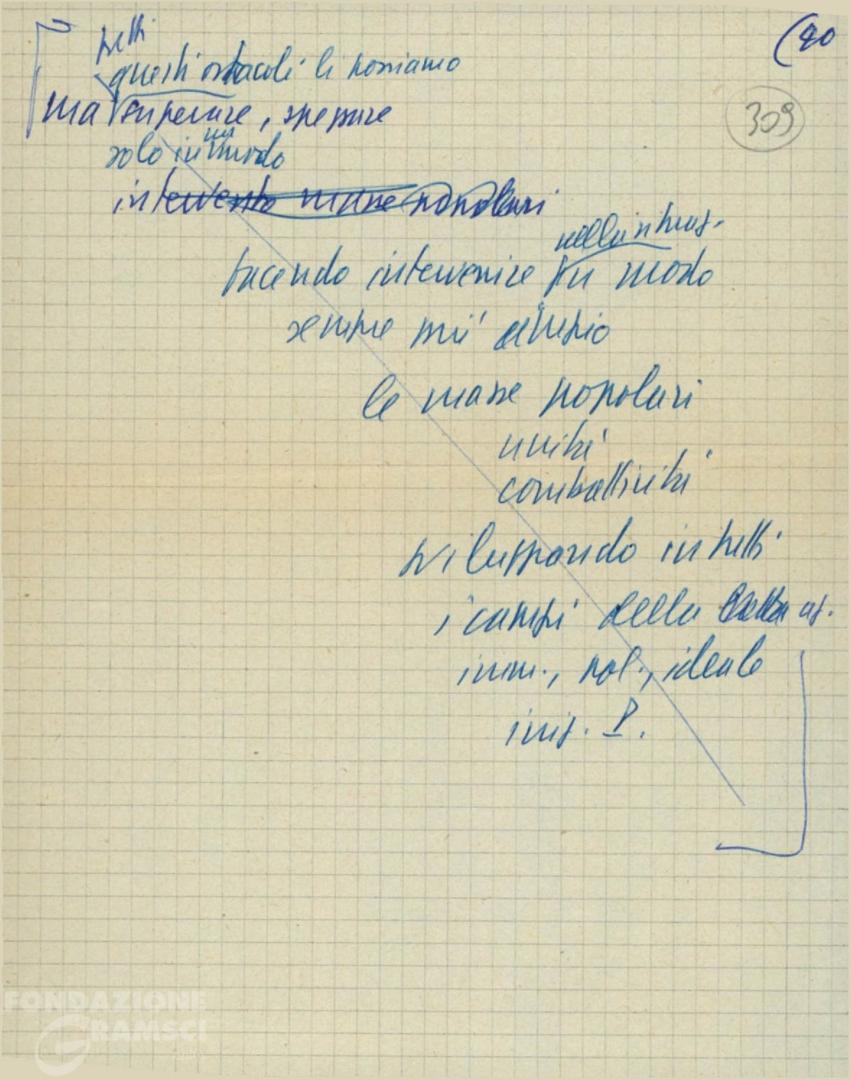 (20
309
tutti
questi ostacoli li possiamo
ma superare, spezzare
solo in un modo
intervento masse popolari
nella
facendo intervenire in modo
sempre più ampio
le masse popolari
unità
combattività
sviluppando in tutti
i campi della
pol., ideale
iniz. P.
FONDAZIONE
GRAMSCI